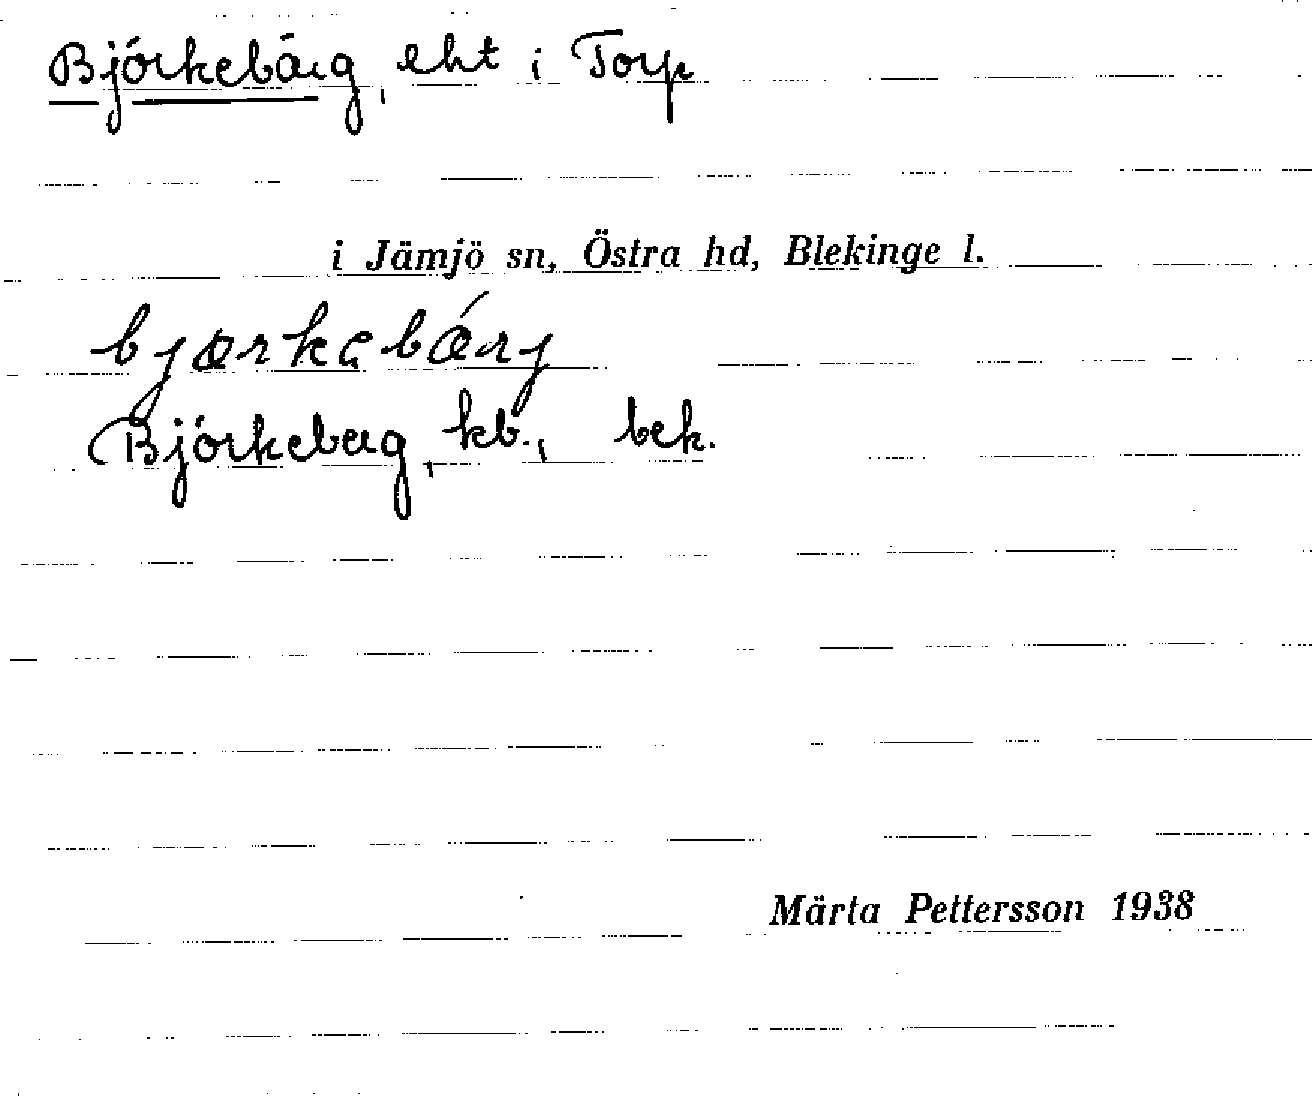 Björkebärg, eht i Torp
i Jämjö sn, Östra hd, Blekinge l.
bjærkəbǽrj
Björkeberg, kb., bek.
Märta Pettersson 1938